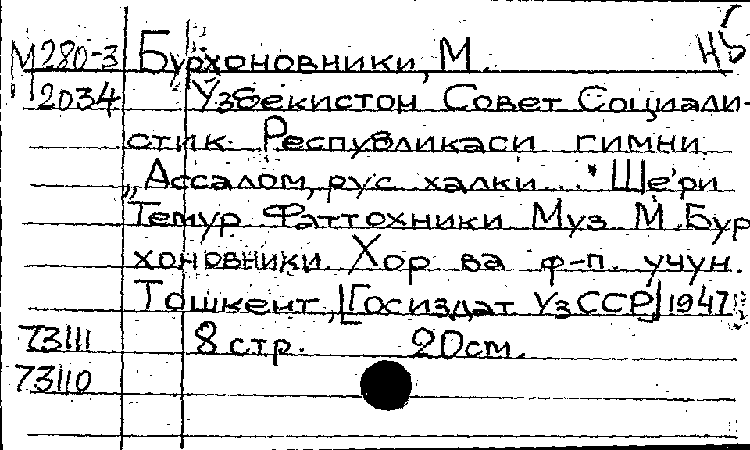 М280-3 Бурхоновники, М. НБ
12034 Ўзбекистон Совет Социали-
стик Республикаси гимни
„Ассалом, рус халки..." Ше'ри
Темур Фаттохники Муз М. Бур
хоновники. Хор ва ф-п. учун.
Тошкент, [Госиздат УзССР] 1947.
73111 8 стр. 20см.
73110